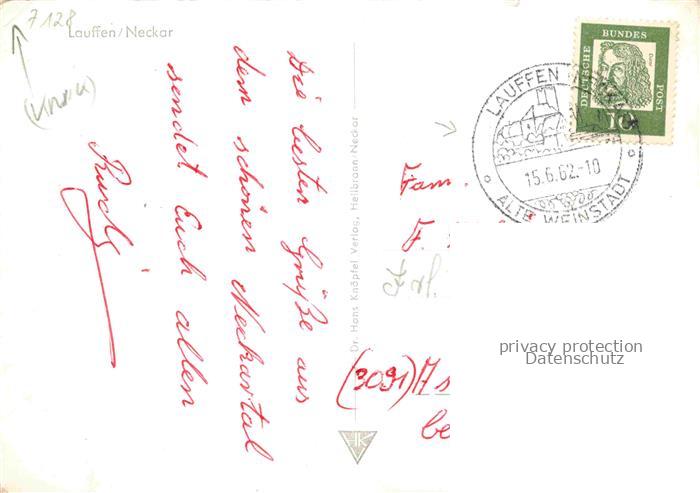 7128
Lauffen/Neckar
Die besten Grüße aus
dem schönen Neckartal
sendet Euch allen
Dr. Hans Knöpfel Verlag, Heilbronn-Neckar
HK
DEUTSCHE BUNDES POST
Dürer
10
LAUFFEN
15.6.62.-10
ALTE WEINSTADT
Fam.
F.
(3091)
be
privacy protection
Datenschutz